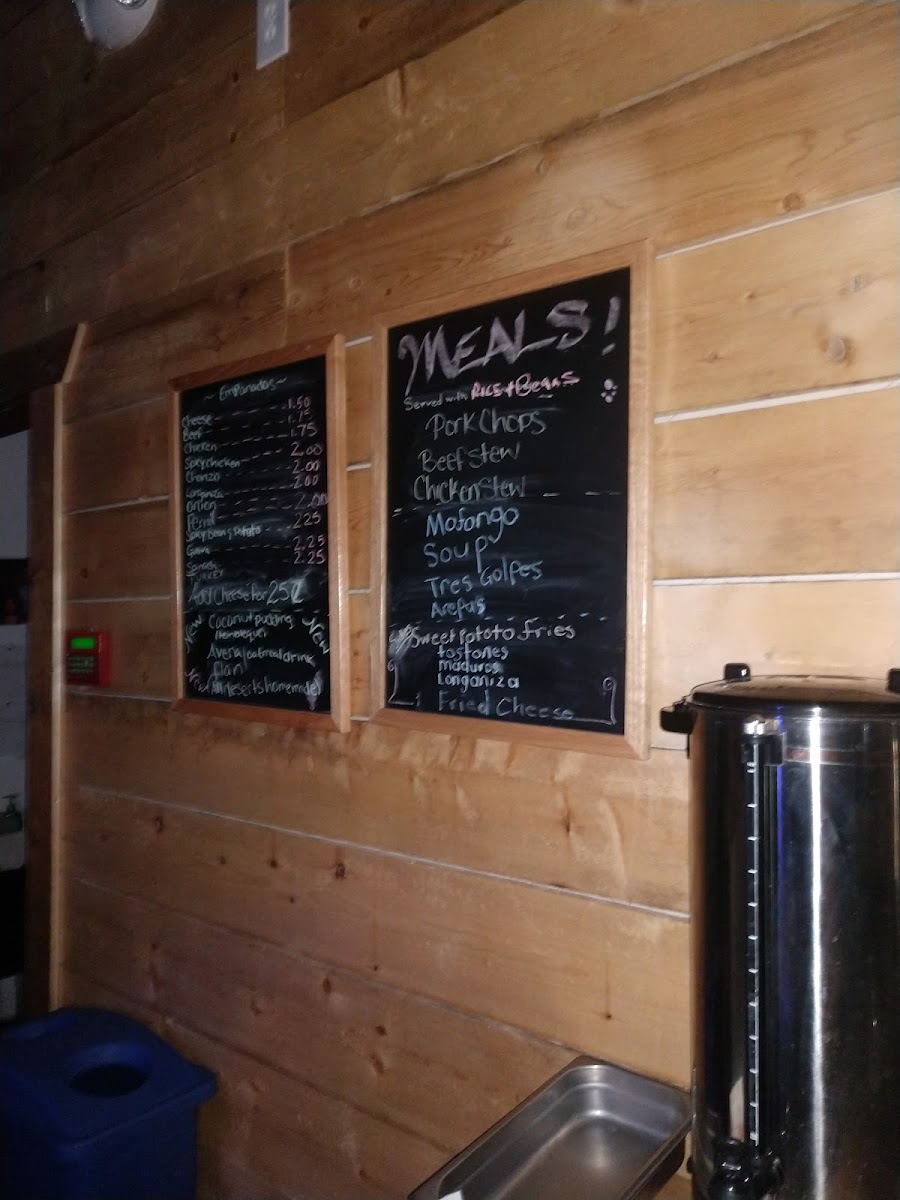 ~ Empanadas ~
Cheese 1.50
Beef 1.75
Chicken 1.75
Spicy chicken 2.00
Chorizo 2.00
Longaniza 2.00
Onion 2.00
Pernil 2.25
Spicy Beans Potato
2.25
Spinach 2.25
TURKEY
Add Cheese for 25¢
New
Coconut pudding
New
Avena (oatmeal drink
Flan
New
All deserts homemade!
MEALS!
Served with Rice + Beans
Pork Chops
Beef Stew
Chicken Stew
Mofongo
Soup
Tres Golpes
Arepas
Sweet pototo fries
tostones
maduros
Longaniza
Fried Cheese